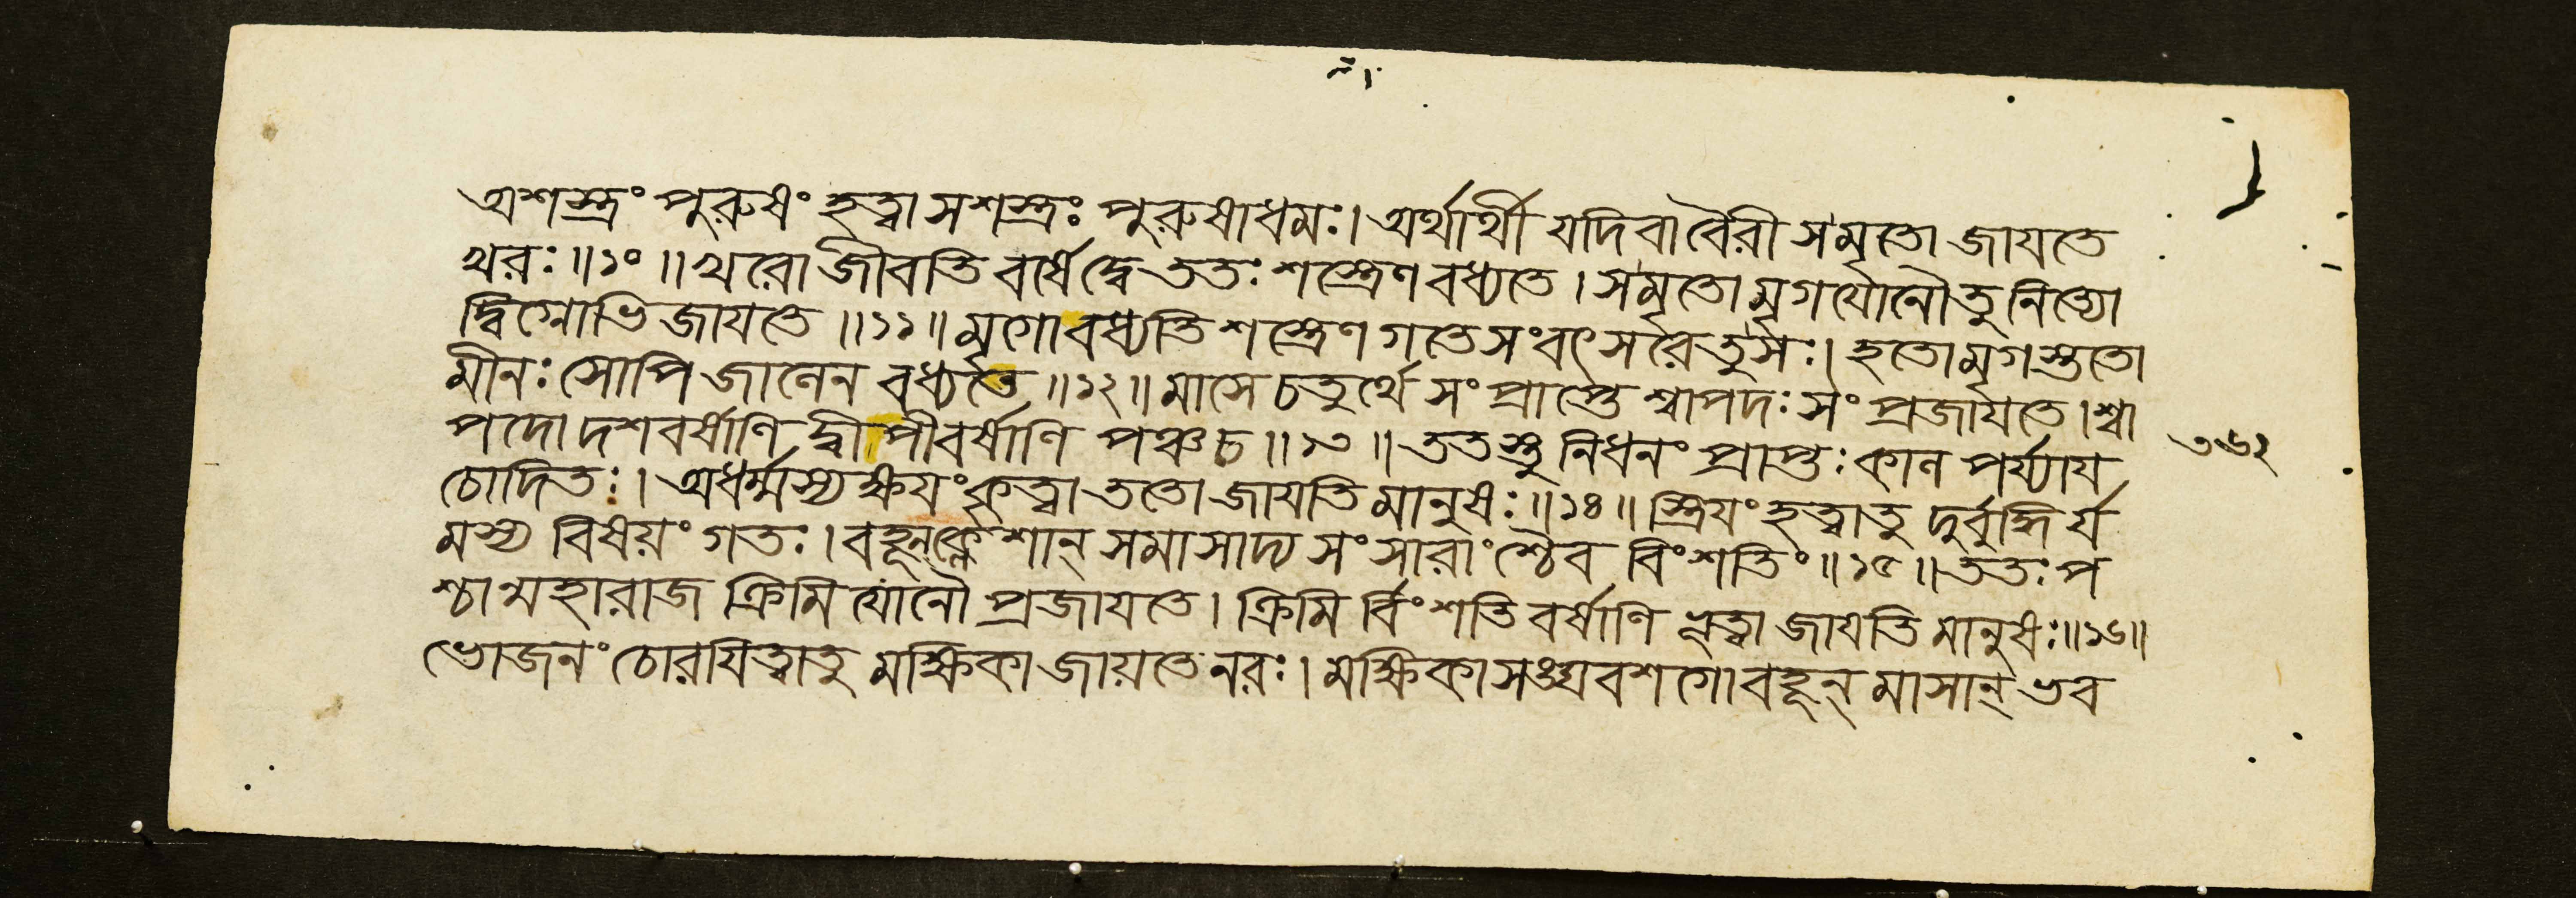 অশস্ত্রং পুরুষং হত্বা সশস্ত্রঃ পুরুষাধমঃ। অর্থার্থী যদি বা বৈরী স মৃতো জাযতে
খরঃ॥১০॥ খরো জীবতি বর্ষে দ্বে ততঃ শস্ত্রেণ বধ্যতে। স মৃতো মৃগযোনৌ তু নিত্যো
দ্বিগ্নোভিজাযতে॥১১॥ মৃগো বধ্যতি শস্ত্রেণ গতে সংবৎসরে তু সঃ। হতো মৃগস্ততো
মীনঃ সোপি জালেন বধ্যতে॥১২॥ মাসে চতুর্থে সংপ্রাপ্তে শ্বাপদঃ সংপ্রজাযতে। শ্বা
পদো দশবর্ষাণি দ্বীপী বর্ষাণি পঞ্চ চ॥১৩॥ ততস্তু নিধনং প্রাপ্তঃ কাল পর্য্যায
চোদিতঃ। অধর্ম্মস্য ক্ষযং কৃত্বা ততো জাযতি মানুষঃ॥১৪॥ স্ত্রিযং হত্বা তু দুর্বুদ্ধি র্য
মস্য বিষয়ং গতঃ। বহূন্ ক্লেশান্ সমাসাদ্য সংসারাংশ্চৈব বিংশতিং॥১৫॥ ততঃ প
শ্চান্মহারাজ ক্রিমি যোনৌ প্রজাযতে। ক্রিমি র্বিংশতি বর্ষাণি ভূত্বা জাযতি মানুষঃ॥১৬॥
ভোজনং চোরযিত্বা তু মক্ষিকা জায়তে নরঃ। মক্ষিকাসঙ্ঘবশগো বহূন্ মাসান্ ভব
৩৬২